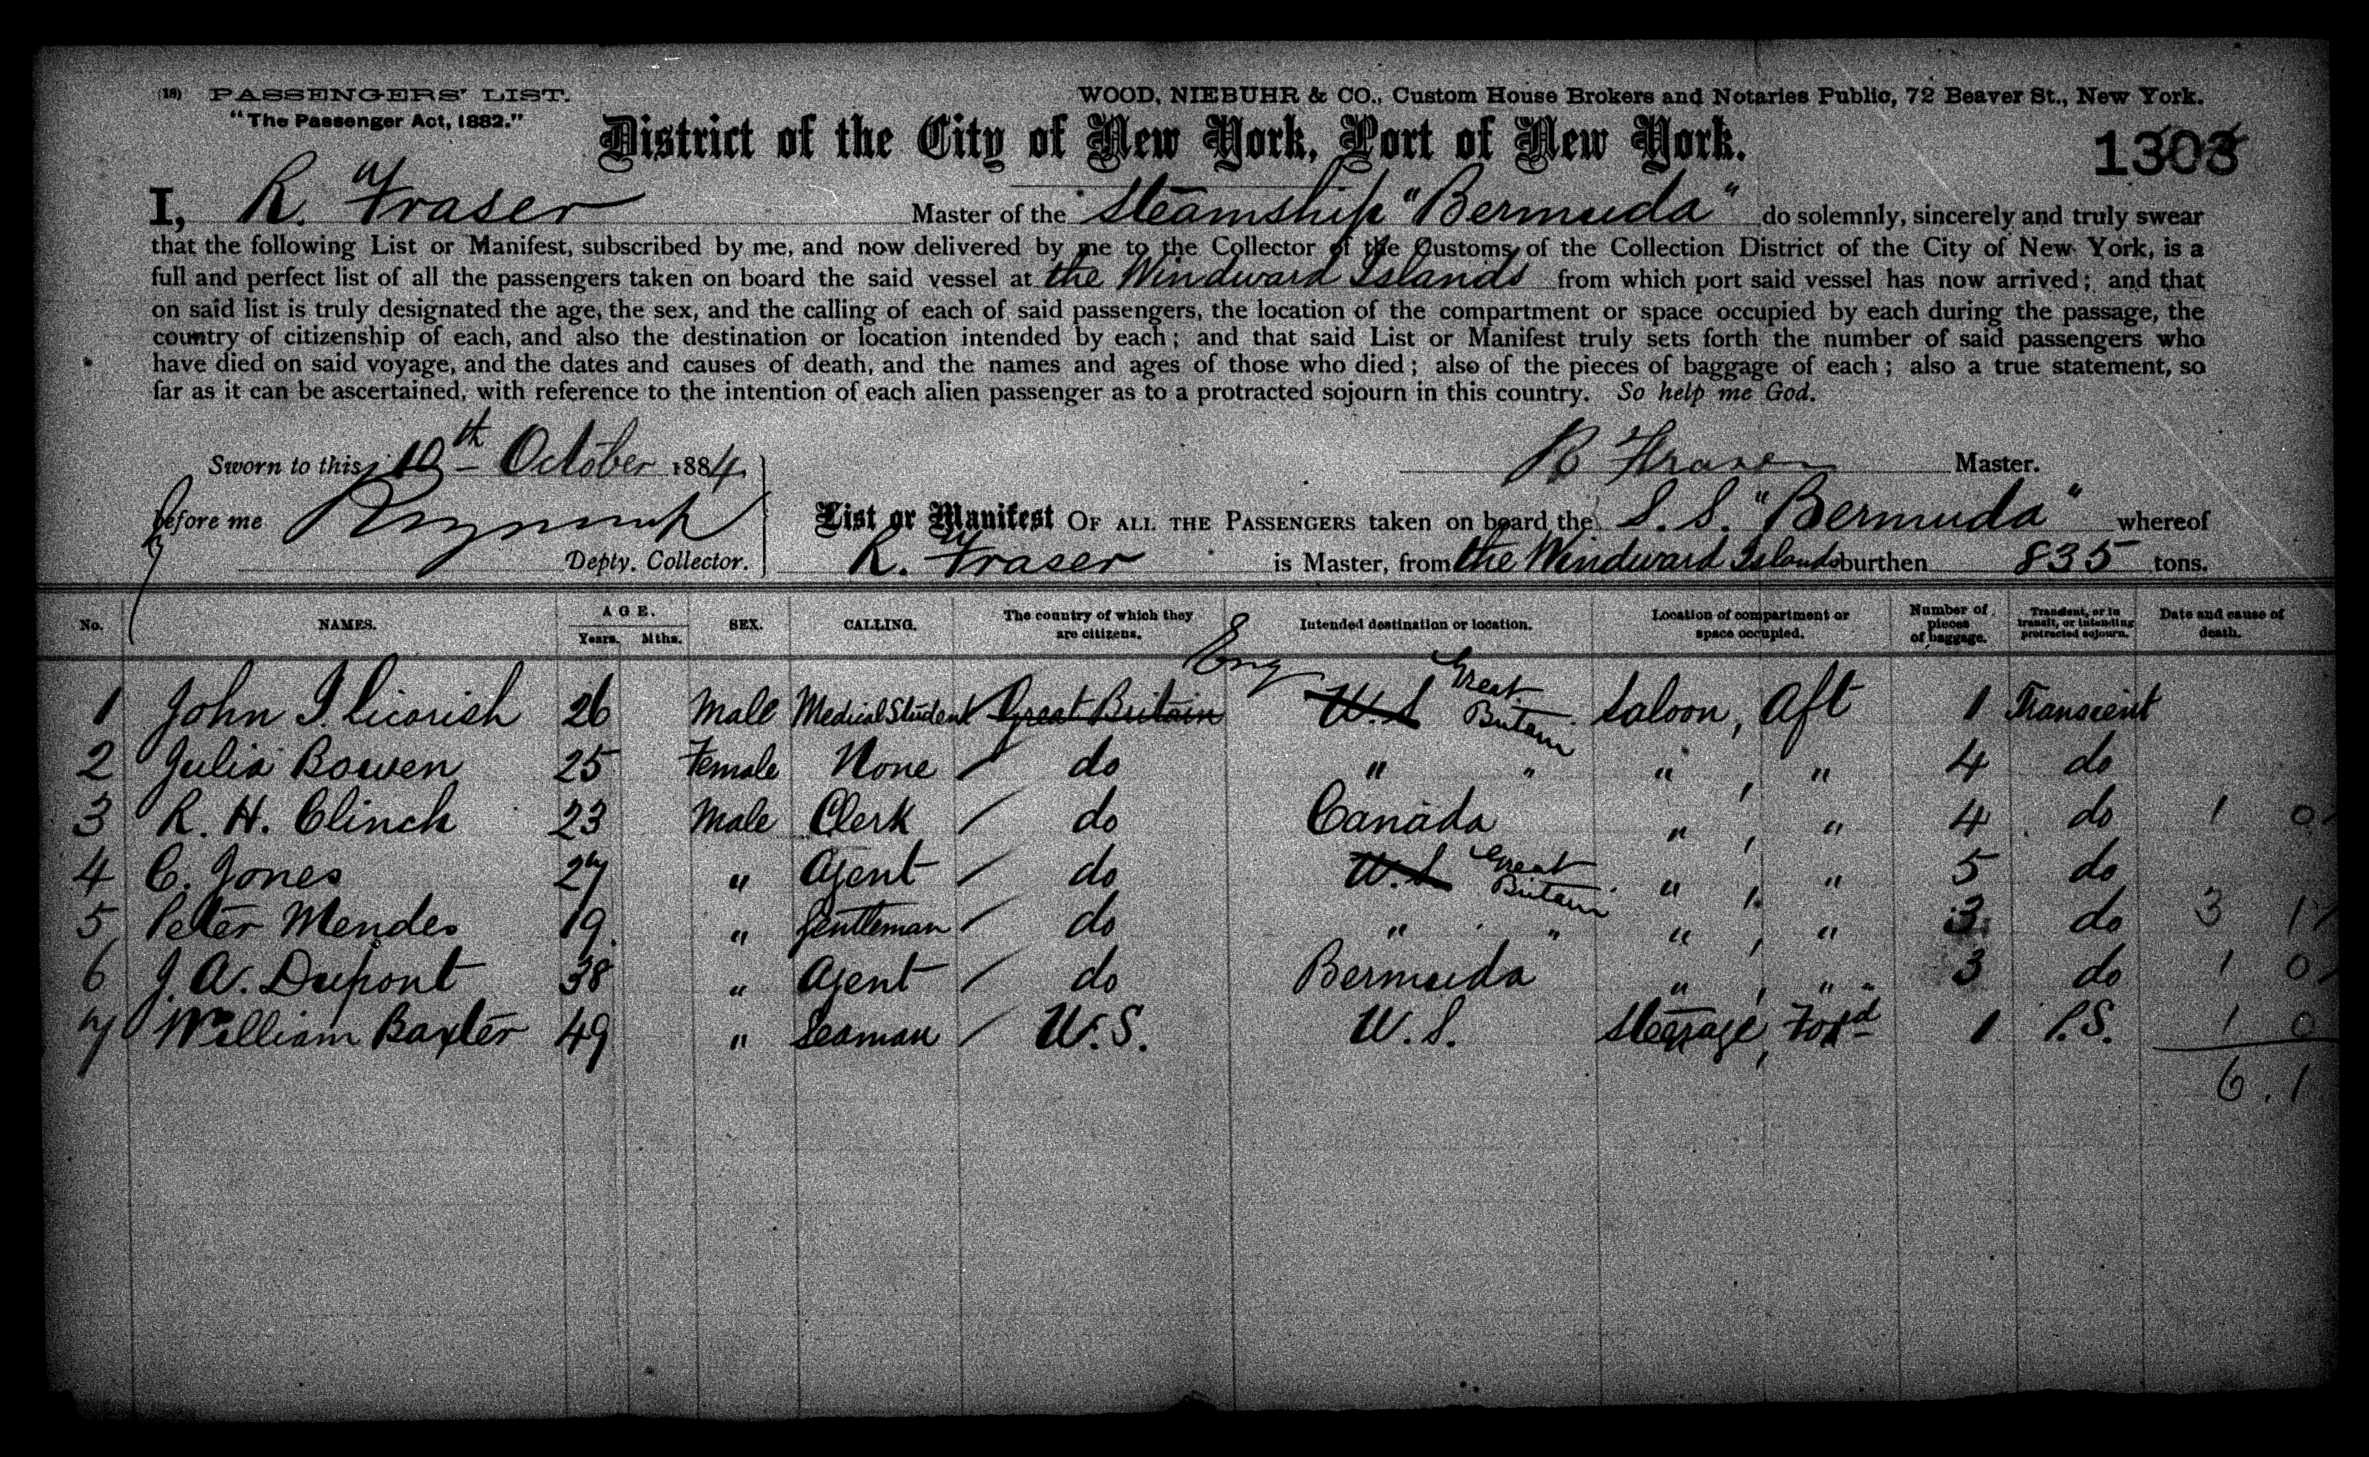 (18) PASSENGERS' LIST.
"The Passenger Act, 1882."
WOOD, NIEBUHR & CO., Custom House Brokers and Notaries Public, 72 Beaver St., New York.
District of the City of New York, Port of New York.
1303
I, R. Fraser Master of the Steamship "Bermuda" do solemnly, sincerely and truly swear
that the following List or Manifest, subscribed by me, and now delivered by me to the Collector of the Customs of the Collection District of the City of New York, is a
full and perfect list of all the passengers taken on board the said vessel at the Windward Islands from which port said vessel has now arrived; and that
on said list is truly designated the age, the sex, and the calling of each of said passengers, the location of the compartment or space occupied by each during the passage, the
country of citizenship of each, and also the destination or location intended by each; and that said List or Manifest truly sets forth the number of said passengers who
have died on said voyage, and the dates and causes of death, and the names and ages of those who died; also of the pieces of baggage of each; also a true statement, so
far as it can be ascertained, with reference to the intention of each alien passenger as to a protracted sojourn in this country. So help me God.
Sworn to this 10th October 1884
R Fraser Master.
before me
Depty. Collector.
List or Manifest OF ALL THE PASSENGERS taken on board the S. S. "Bermuda" whereof
R. Fraser is Master, from the Windward Islands burthen 835 tons.
No. NAMES. AGE. Years. Mths. SEX. CALLING. The country of which they are citizens. Intended destination or location. Location of compartment or space occupied. Number of pieces of baggage. Transient, or in transit, or intending protracted sojourn. Date and cause of death.
Eng
1 John I. Licorish 26 Male Medical Student Great Britain U.S Great Britain Saloon, Aft 1 Transient
2 Julia Bowen 25 Female None / do " " " , " 4 do
3 R. H. Clinch 23 Male Clerk / do Canada " , " 4 do 1 0
4 C. Jones 27 " Agent / do U.S Great Britain " , " 5 do
5 Peter Mendes 19 " Gentleman / do " " " , " 3 do 3 1
6 J. A. Dupont 38 " Agent / do Bermuda " , " 3 do 1 0
7 William Baxter 49 " Seaman / U.S. U.S. Steerage, Ford 1 P.S. 1 0
6.1